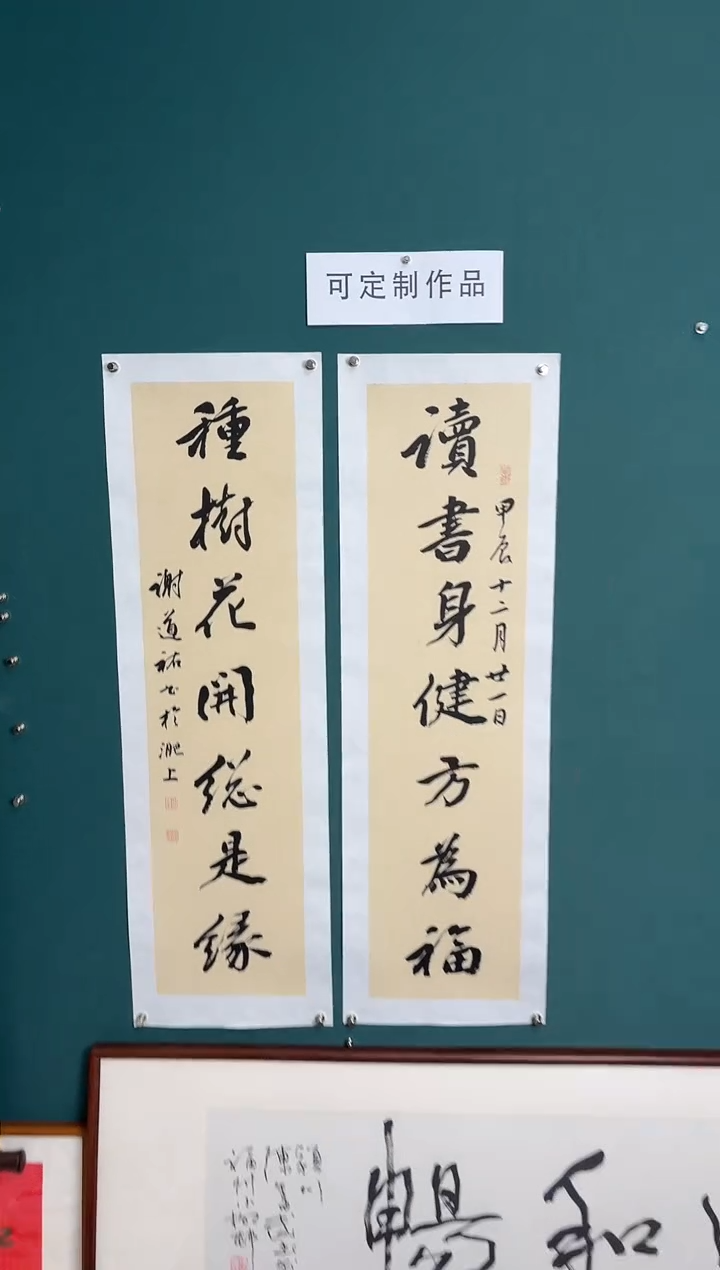 可定制作品
讀書身健方為福
甲辰十二月廿一日
種樹花開総是緣
謝道祐书於淝上
暢和